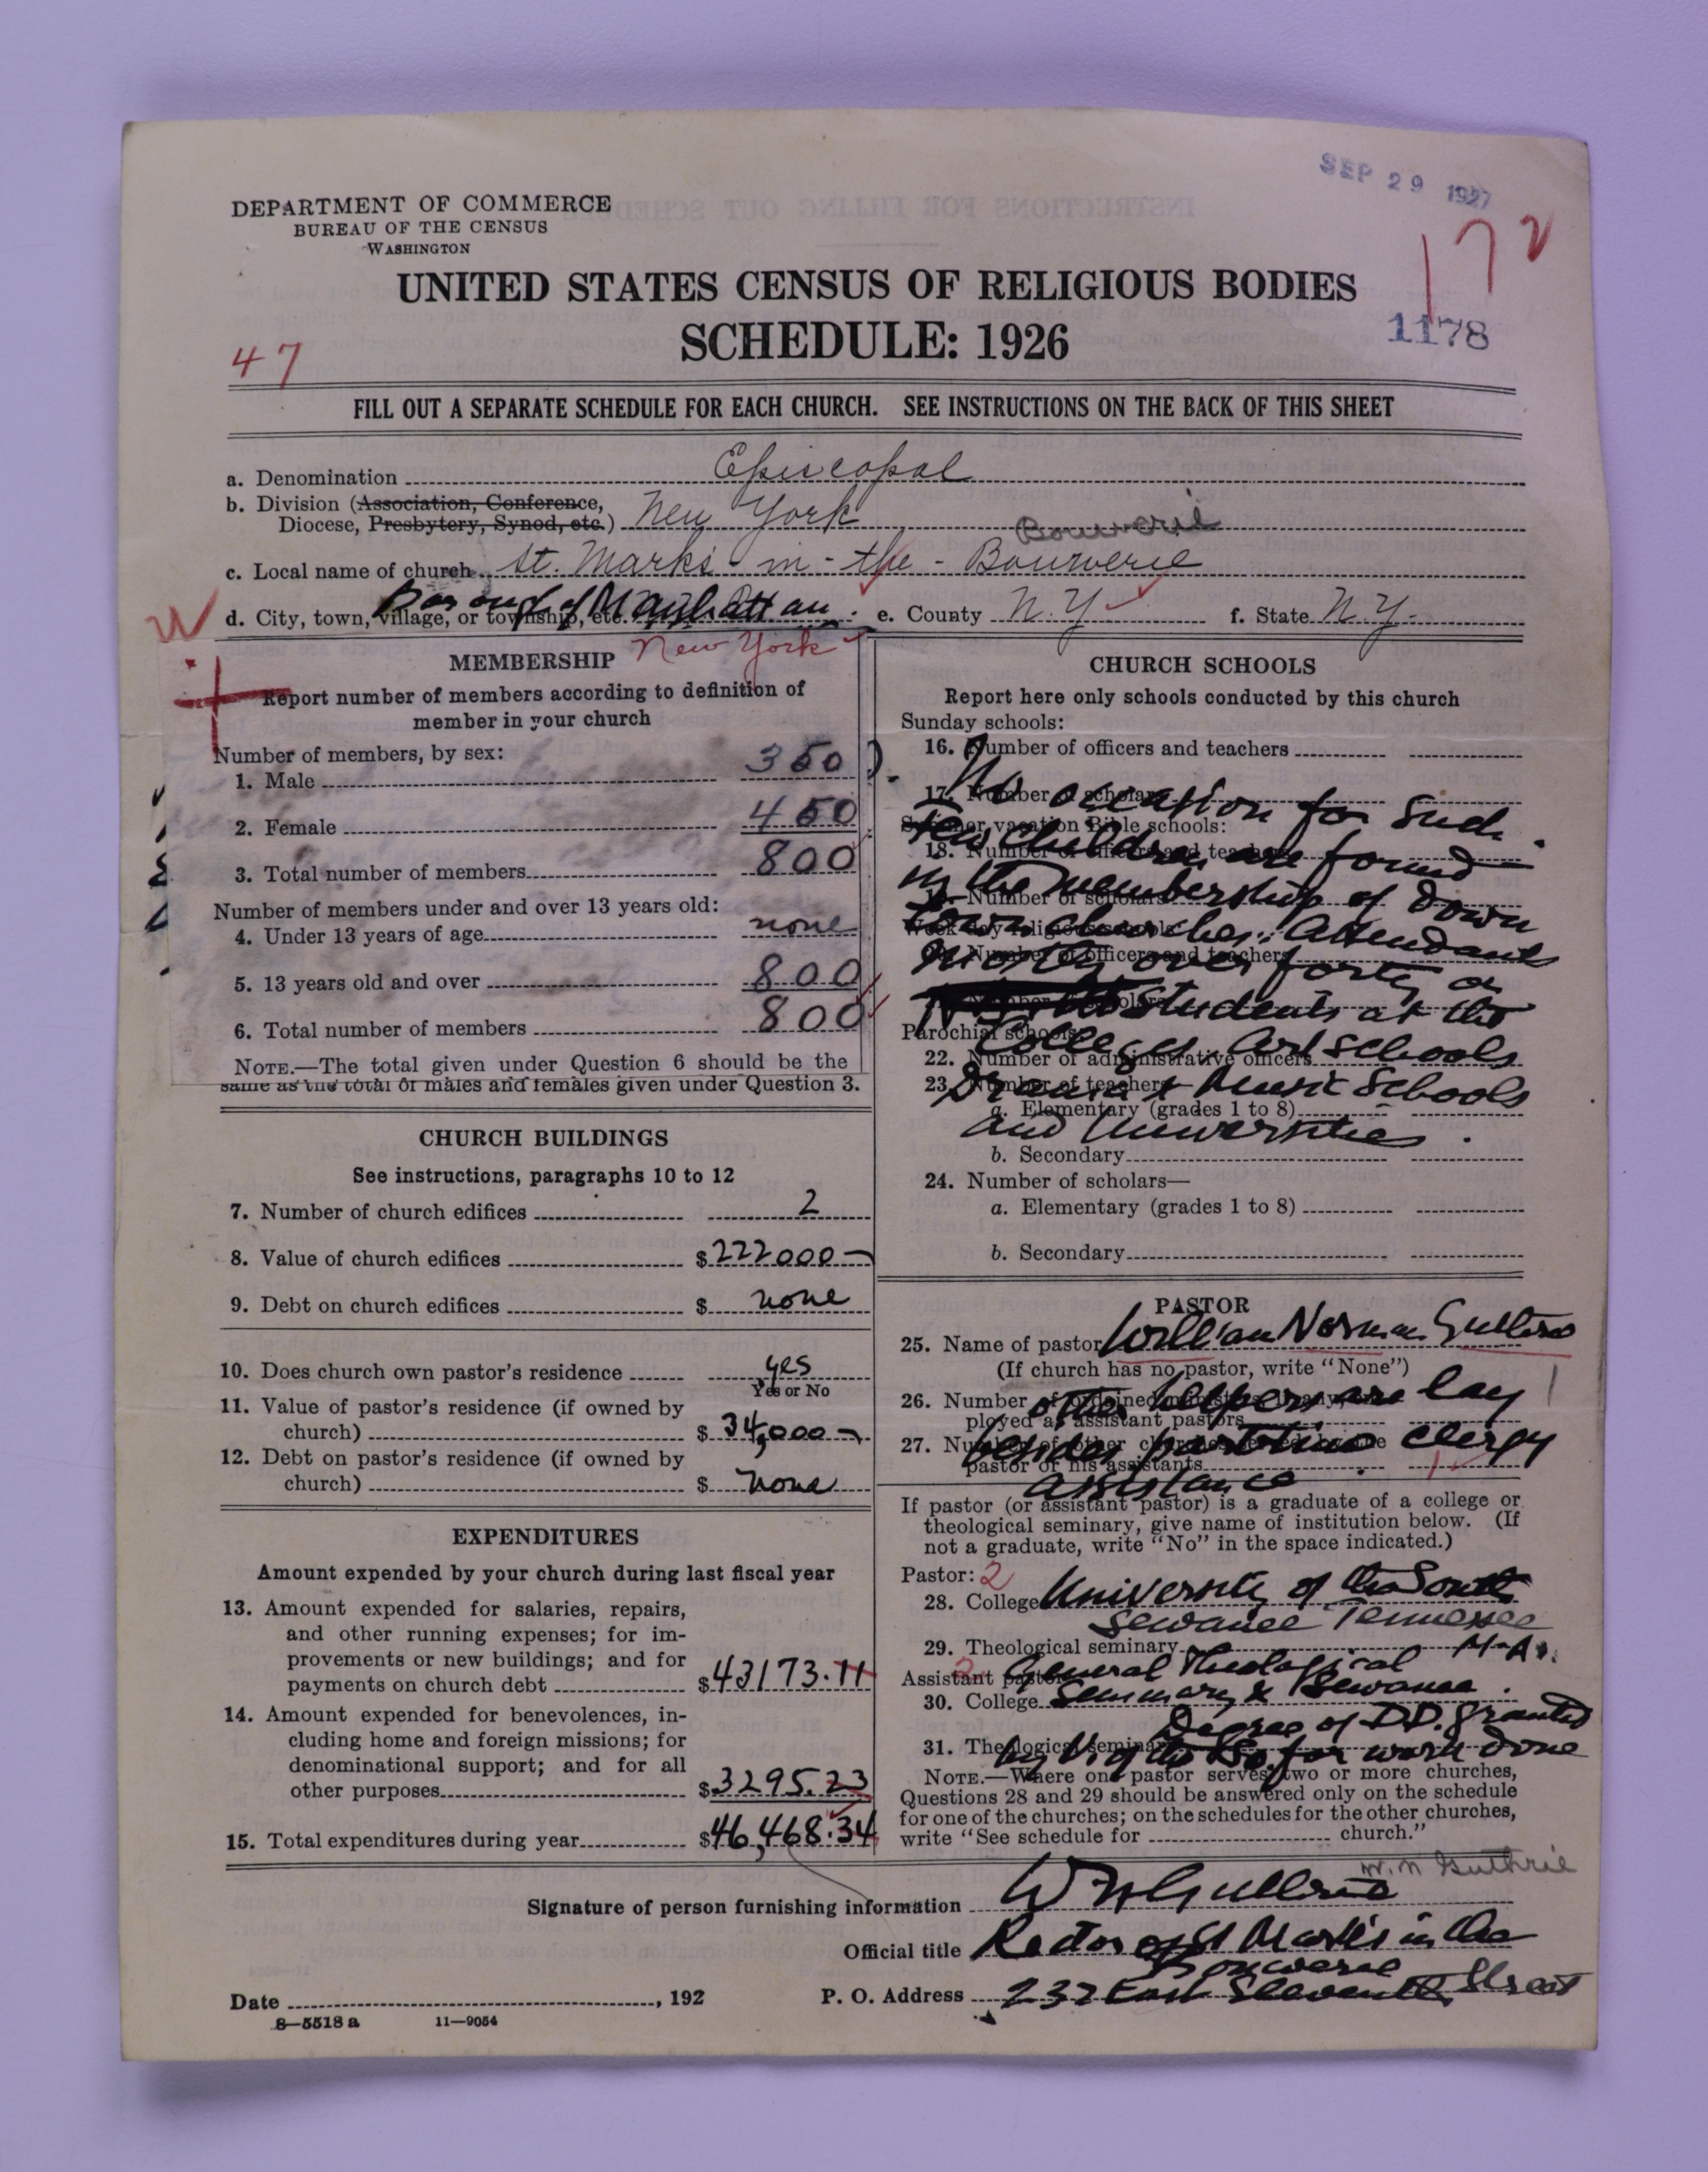 SEP 29 1927
172
1178
DEPARTMENT OF COMMERCE
BUREAU OF THE CENSUS
WASHINGTON
UNITED STATES CENSUS OF RELIGIOUS BODIES
SCHEDULE: 1926
47
FILL OUT A SEPARATE SCHEDULE FOR EACH CHURCH. SEE INSTRUCTIONS ON THE BACK OF THIS SHEET
a. Denomination Episcopal
b. Division (Association, Conference,
Diocese, Presbytery, Synod, etc.) New York
Bouwerie
c. Local name of church St. Marks-in-the-Bouwerie
W
d. City, town, village, or township, etc. Borough of Manhattan. e. County N.Y. f. State N.Y.
New York
MEMBERSHIP
Report number of members according to definition of
member in your church
Number of members, by sex:
1. Male 350
2. Female 450
3. Total number of members 800
Number of members under and over 13 years old:
4. Under 13 years of age none
5. 13 years old and over 800
6. Total number of members 800
NOTE.—The total given under Question 6 should be the
same as the total of males and females given under Question 3.
CHURCH BUILDINGS
See instructions, paragraphs 10 to 12
7. Number of church edifices 2
8. Value of church edifices $222000-
9. Debt on church edifices $ none
10. Does church own pastor's residence yes
Yes or No
11. Value of pastor's residence (if owned by
church) $34,000-
12. Debt on pastor's residence (if owned by
church) $ none
EXPENDITURES
Amount expended by your church during last fiscal year
13. Amount expended for salaries, repairs,
and other running expenses; for im-
provements or new buildings; and for
payments on church debt $43173.11
14. Amount expended for benevolences, in-
cluding home and foreign missions; for
denominational support; and for all
other purposes $3295.23
15. Total expenditures during year $46,468.34
CHURCH SCHOOLS
Report here only schools conducted by this church
Sunday schools:
16. Number of officers and teachers
17. Number of scholars
No occasion for such.
Summer vacation Bible schools:
Few children are found
18. Number of officers and teachers
in the membership of down
19. Number of scholars
town churches. Attendants
Week-day religious schools:
20. Number of officers and teachers
mostly over forty or
Number of scholars
students at the
Parochial schools:
Colleges, Art Schools
22. Number of administrative officers
23. Number of teachers—
Drama & Music Schools
a. Elementary (grades 1 to 8)
and Universities.
b. Secondary
24. Number of scholars—
a. Elementary (grades 1 to 8)
b. Secondary
PASTOR
25. Name of pastor William Norman Guthrie
(If church has no pastor, write "None")
26. Number of ordained ministers, if any, em-
ployed as assistant pastors
1
other helpers are lay
27. Number of other churches served by the
pastor or his assistants
besides part time clergy
assistance.
If pastor (or assistant pastor) is a graduate of a college or
theological seminary, give name of institution below. (If
not a graduate, write "No" in the space indicated.)
Pastor: 2
28. College University of the South
Sewanee Tennessee
29. Theological seminary M.A.
Assistant pastor:
General Theological
30. College Seminary & Sewanee.
Degree of D.D. granted
31. Theological seminary
by U. of the So. for work done
NOTE.—Where one pastor serves two or more churches,
Questions 28 and 29 should be answered only on the schedule
for one of the churches; on the schedules for the other churches,
write "See schedule for church."
W. N. Guthrie
Signature of person furnishing information W N Guthrie
Official title Rector of St Mark's in the
Bouwerie
Date , 192 P. O. Address 232 East Eleventh Street
8—5518 a 11—9054